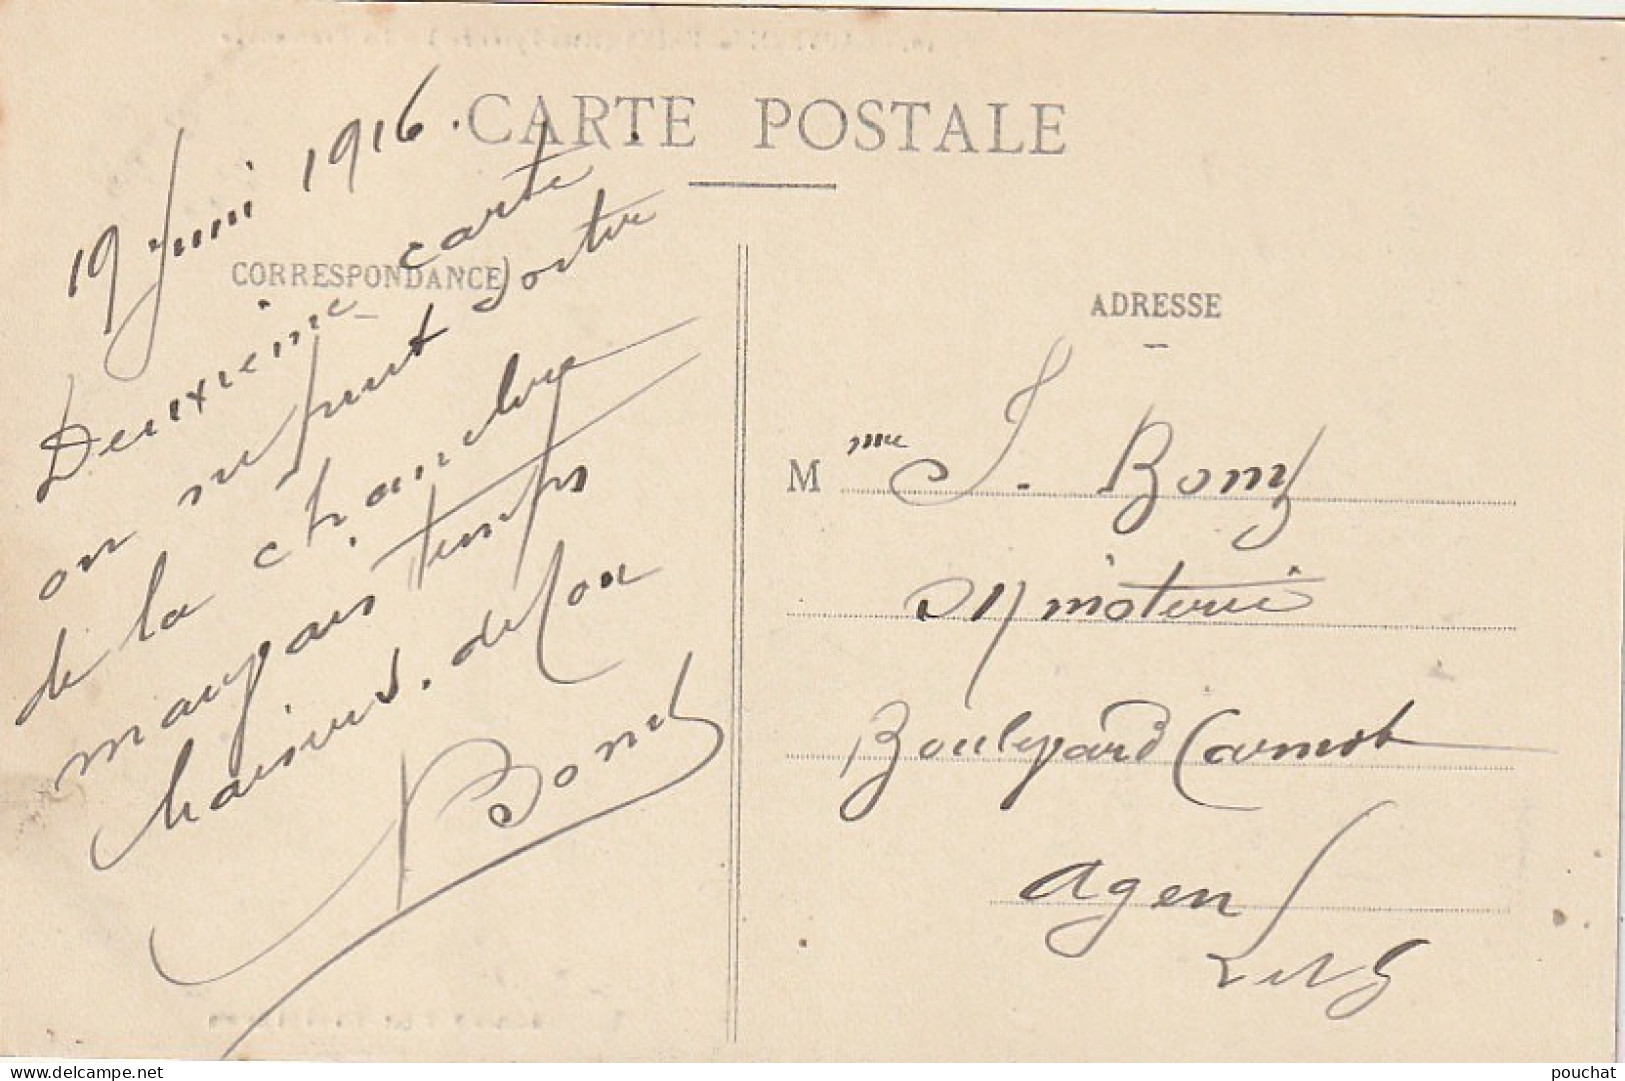 CARTE POSTALE
19 Juin 1916.
CORRESPONDANCE
Deuxième carte.
on ne peut sortir
de la chambre
mauvais temps
baisers. de ton
Bony
ADRESSE
Mme J. Bony
Minoterie
Boulevard Carnot
Agen
L et G
delcampe.net
pouchat